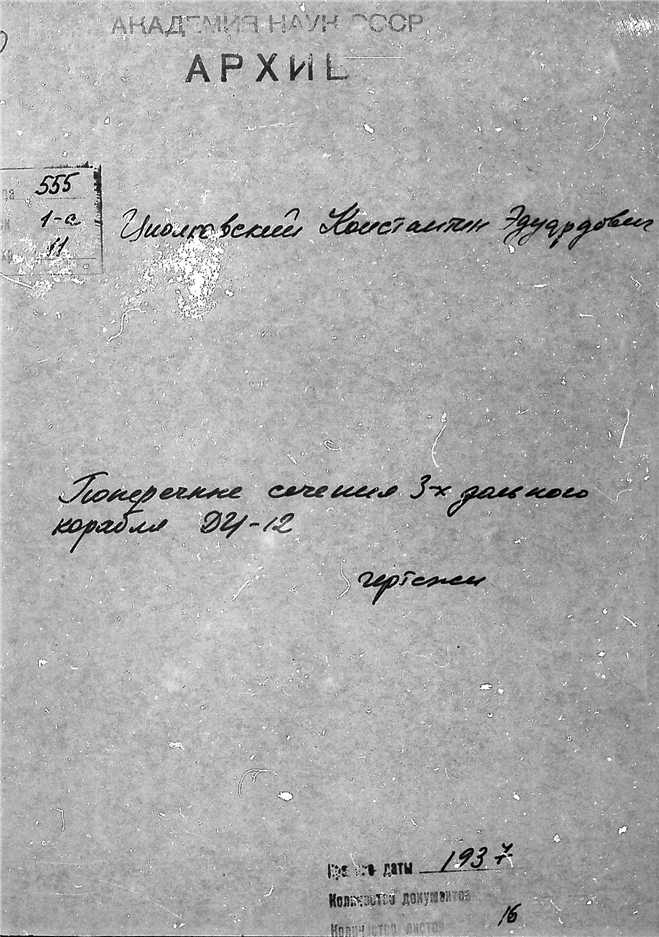 АКАДЕМИЯ НАУК СССР
АРХИВ
555
1-а
11
Циолковский Константин Эдуардович
Поперечные сечения 3-х зального
корабля ДЦ-12
чертежи
даты 1937
Количество документов
Количество листов 16